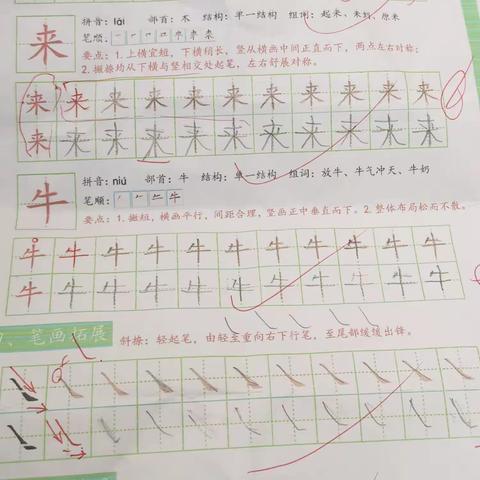 来
拼音：lái 部首：木 结构：单一结构 组词：起来、原来
笔顺：
要点：1.上横宜短，下横稍长，竖从横画中间正直而下，两点左右对称；
2.撇捺均从下横与竖相交处起笔，左右舒展对称。
来 来 来 来 来 来 来 来 来 来 来
来 来 来 来 来 来 来 来 来 来 来
牛
拼音：niú 部首：牛 结构：单一结构 组词：放牛、牛气冲天、牛奶
笔顺：丿 𠂉 二 牛
要点：1.撇短，横画平行，间距合理，竖画正中垂直而下。2.整体布局松而不散。
牛 牛 牛 牛 牛 牛 牛 牛 牛 牛 牛
牛 牛 牛 牛 牛 牛 牛 牛 牛 牛 牛
、笔画拓展 斜捺：轻起笔，由轻至重向右下行笔，至尾部缓缓出锋。